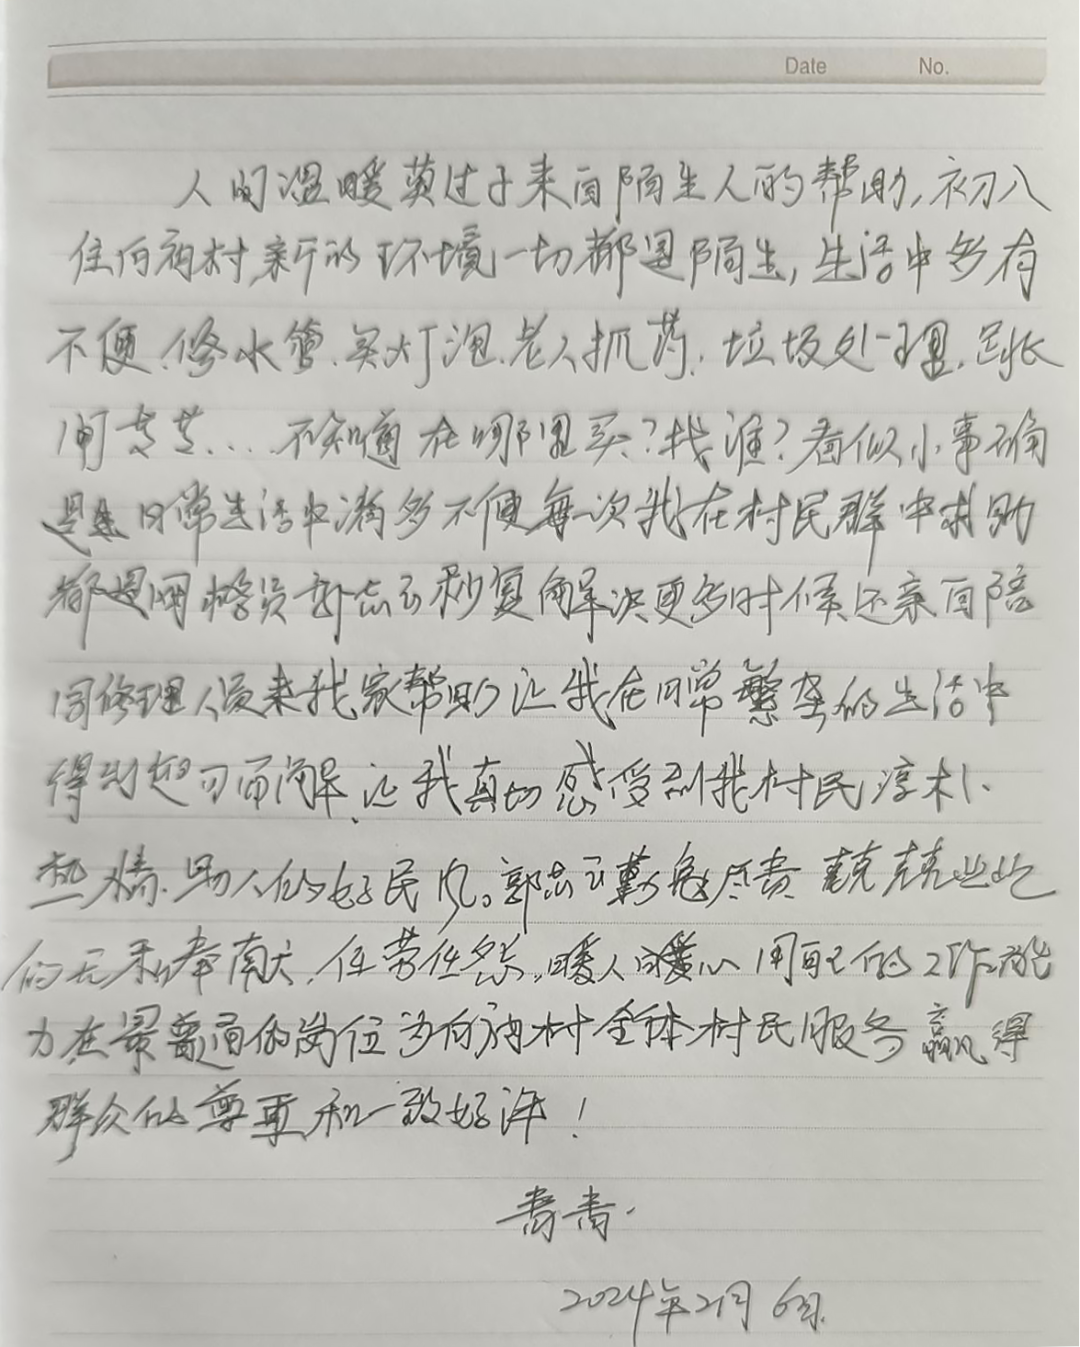 Date No.
人间温暖莫过于来自陌生人的帮助,初入
住向祠村,新的环境一切都是陌生,生活中多有
不便.修水管.买灯泡.老人抓药.垃圾处理.
不知道在哪里买?找谁?看似小事确
是 日常生活中诸多不便每次我在村民群中求助
都是网格员郭志云秒复解决更多时候还亲自陪
同修理人员来我家帮助让我在日常繁杂的生活中
得到迎刃而解.让我真切感受到我村民淳朴、
热情.助人的好民风。郭志云勤勉尽责 兢兢业业
的无私奉献.任劳任怨.暖人暖心 用自己的工作能
力在最普通的岗位为向祠村全体村民服务 赢得
群众的尊重和一致好评!
2024年2月6日.